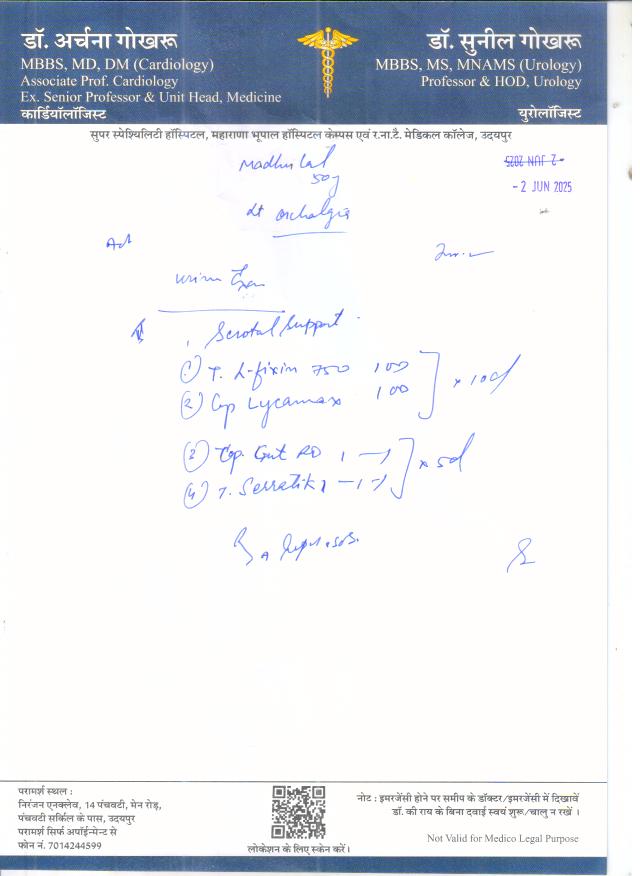 डॉ. अर्चना गोखरू
MBBS, MD, DM (Cardiology)
Associate Prof. Cardiology
Ex. Senior Professor & Unit Head, Medicine
कार्डियॉलॉजिस्ट
डॉ. सुनील गोखरू
MBBS, MS, MNAMS (Urology)
Professor & HOD, Urology
युरोलॉजिस्ट
सुपर स्पेश्यिलिटी हॉस्पिटल, महाराणा भूपाल हॉस्पिटल केम्पस एवं र.ना.टै. मेडिकल कॉलेज, उदयपुर
Madhu Lal
50y
-2 JUN 2025
-2 JUN 2025
Lt orchalgia
Adv
urine Exam
Scrotal Support
(1) T. L-fixin 750 100
(2) Cap Lycamax 100
x 10d
(3) Cap. Gut RD 1 —1
(4) T. Serratik 1 —1
x 5d
परामर्श स्थल :
निरंजन एनक्लेव, 14 पंचवटी, मेन रोड़,
पंचवटी सर्किल के पास, उदयपुर
परामर्श सिर्फ अपॉईन्मेन्ट से
फोन नं. 7014244599
लोकेशन के लिए स्केन करें।
नोट : इमरजेंसी होने पर समीप के डॉक्टर/इमरजेंसी में दिखावें
डॉ. की राय के बिना दवाई स्वयं शुरू/चालु न रखें ।
Not Valid for Medico Legal Purpose